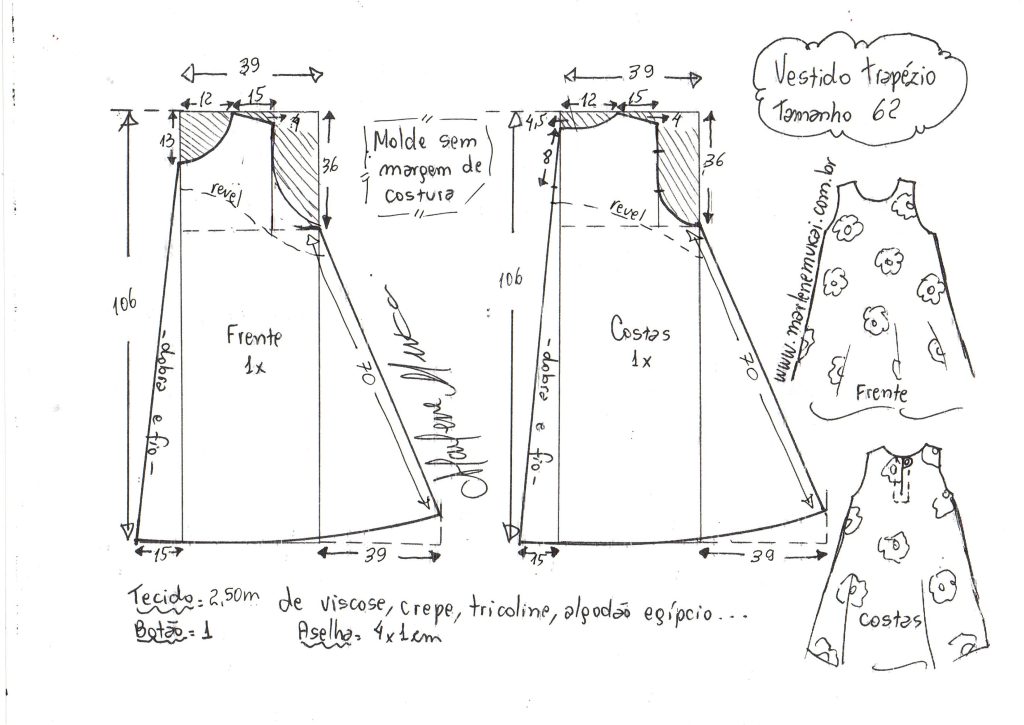 Vestido trapézio
Tamanho 62
39
12
15
4
13
36
106
revel
Frente
1x
dobra e fio
70
15
39
Molde sem
margem de
costura
Marlene Mukai
39
12
15
4
4,5
8
36
106
revel
Costas
1x
dobra e fio
70
15
39
www.marlenemukai.com.br
Frente
Costas
Tecido = 2,50m de viscose, crepe, tricoline, algodão egípcio...
Botão = 1 Aselha = 4x1cm